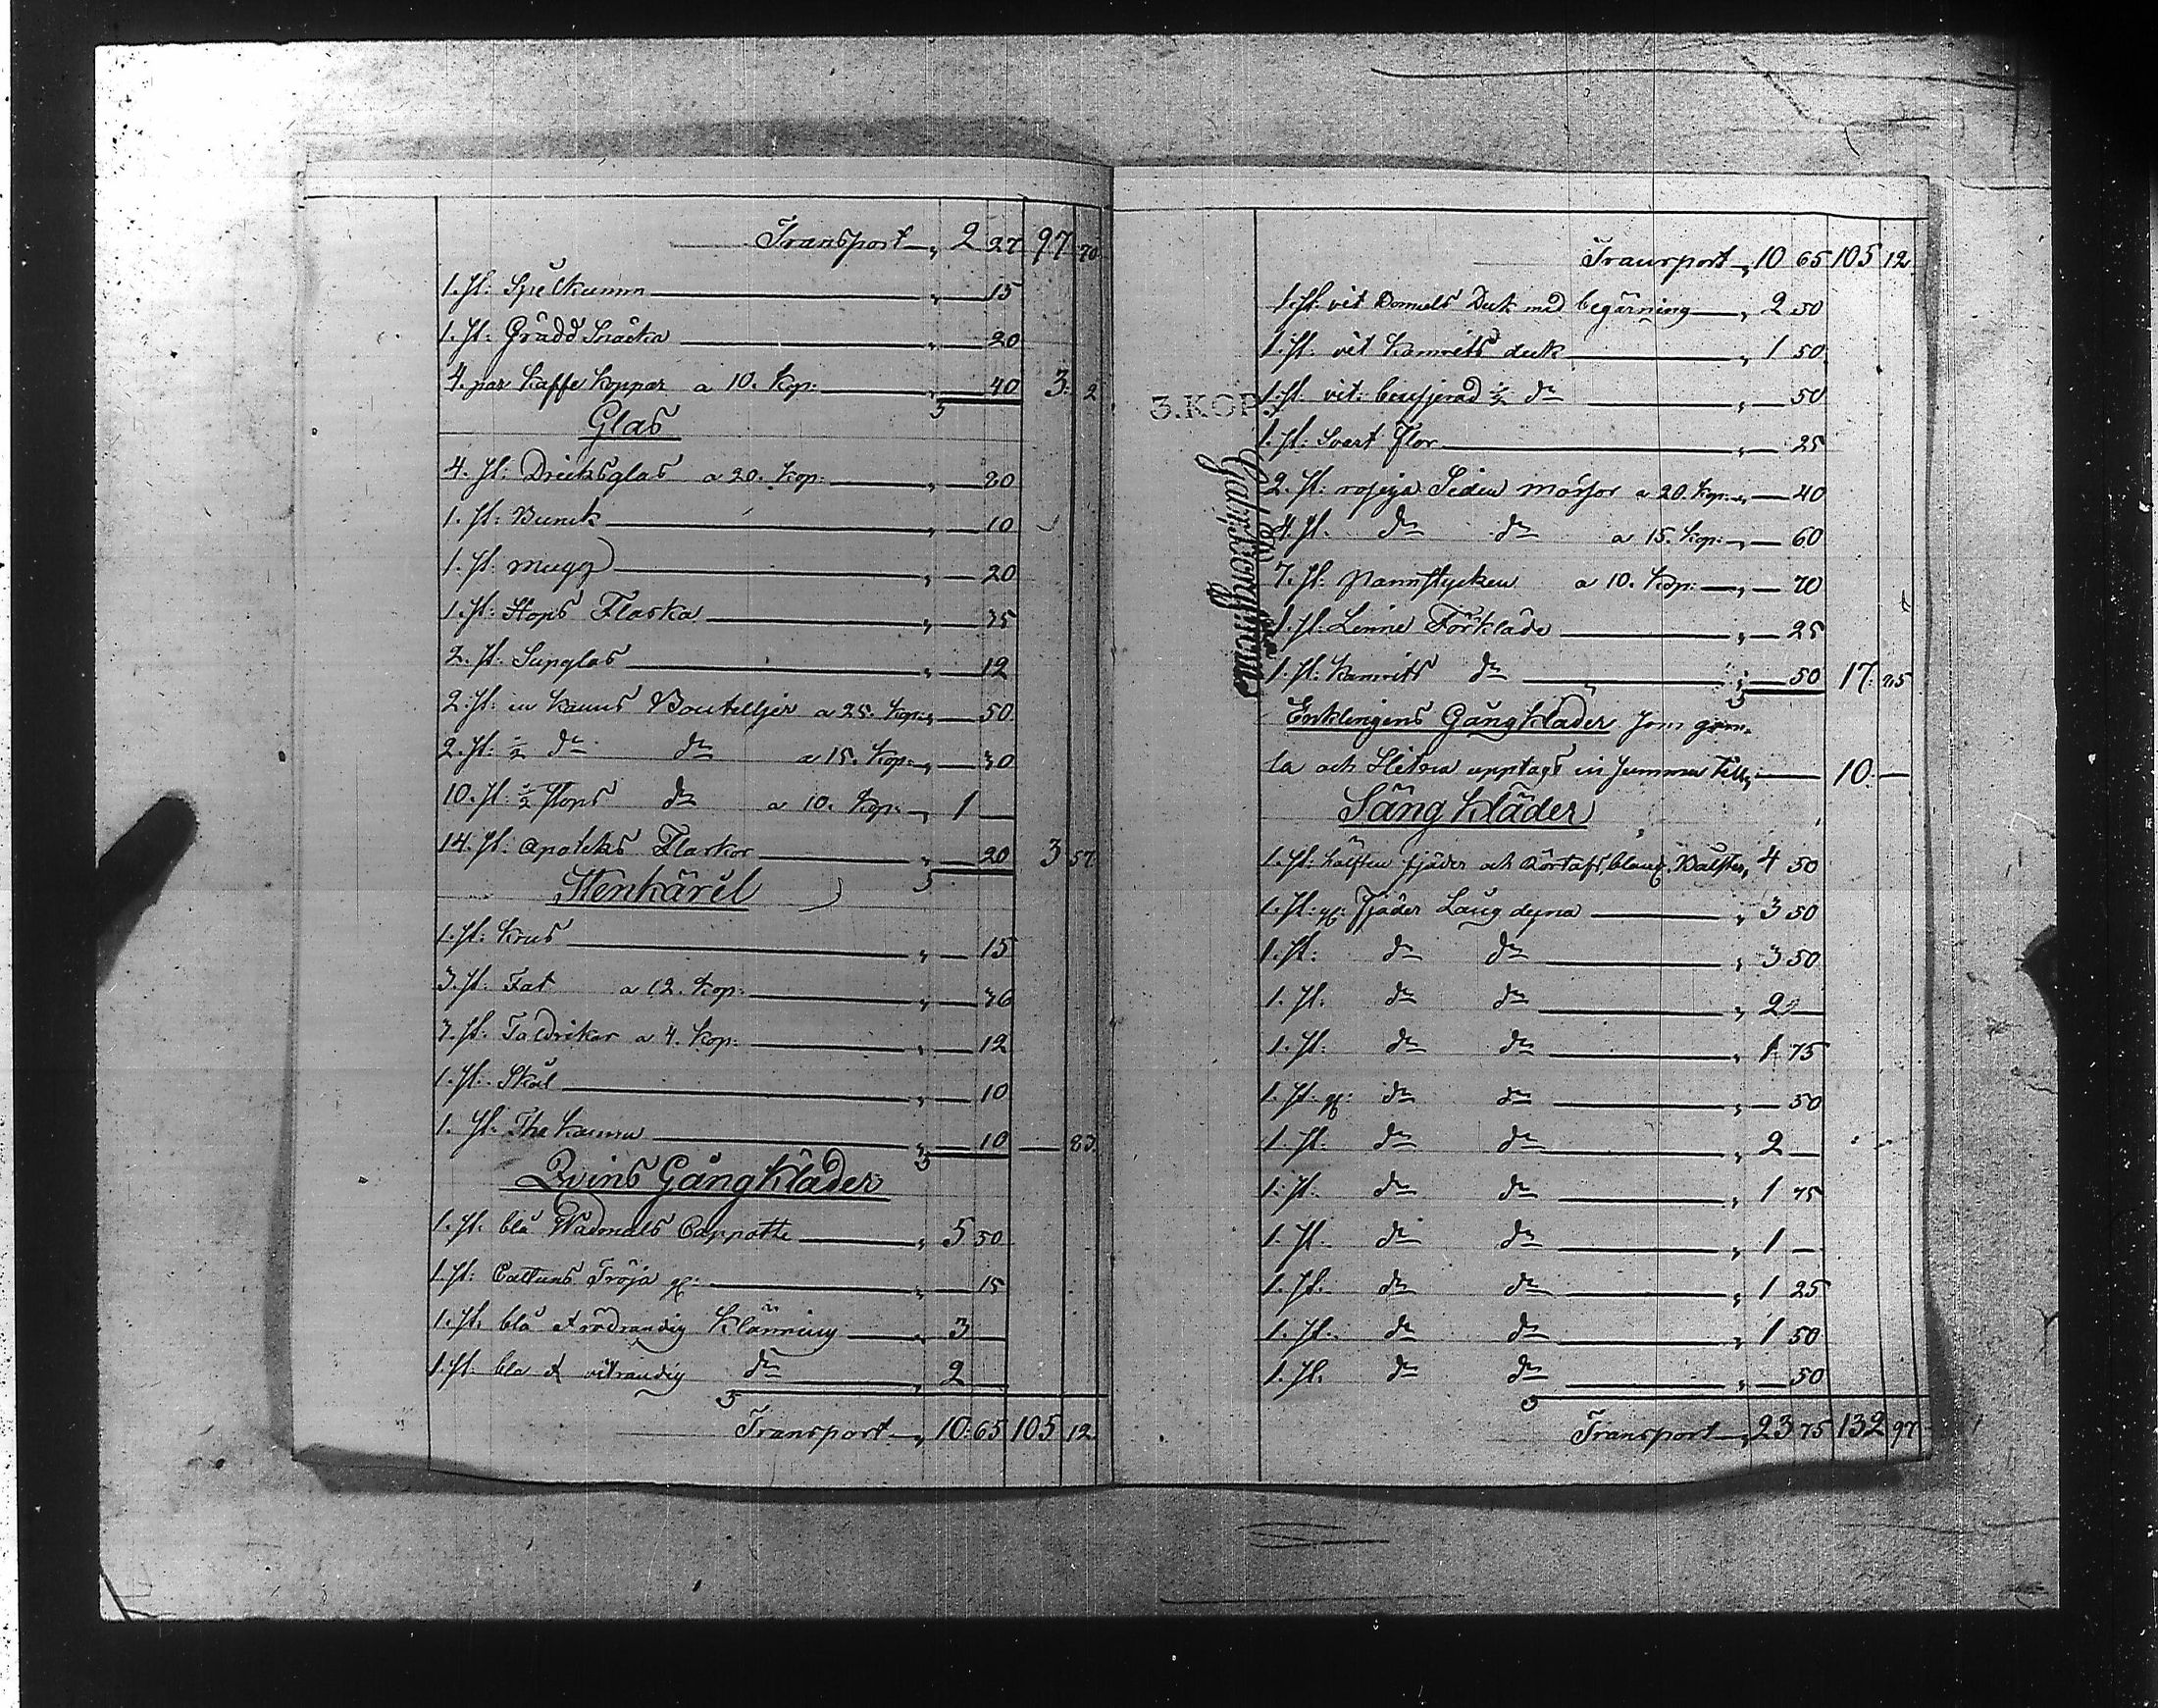 Transport „ 2 27 97 70
1. st: Spelkumm „ — 15
1. st: Grädd Snäcka „ — 20
4. par Kaffe Koppar a 10. Kop: „ — 40 3. 2
Glas
4. st: Dricksglas a 20. Kop: „ — 80
1. st: Bunck „ — 10
1. st: mugg „ — 20
1. st: Stops Flaska „ — 35
2. st. Supglas „ — 12
2. st: en Kanns Boutelljer a 25. Kop: „ — 50
2. st: ½ do do a 15. Kop: „ — 30
10. st ½ stops do a 10. Kop: „ 1 —
14. st: Apoteks Flaskor „ — 20 3 57
Stenkäril
1. st: Krus „ — 15
3. st: Fat a 12. Kop: „ — 36
3. st: Taldrikar a 4. Kop: „ — 12
1. st: Skål „ — 10
1. st. The Kanna „ — 10 — 83
Qvins Gångkläder
1. st. blå Wadmals Cappotte „ 5 50
1. st: Cattuns Tröja gl: „ — 15
1. st. blå & rödrandig Klänning „ 3 —
1. st. bla & vitrandig do „ 2 —
Transport „ 10 65 105 12
Transport „ 10 65 105 12
1. st. vit Domels Duk med begärning „ 2 50
1. st. vit Kamrits duk „ 1 50
3. KOP.
1. st. vit: ½ do „ — 50
1. st: Svart Flor „ — 25
2. st: Siden mössor a 20. Kop: „ — 40
4. st. do do a 15. Kop: „ — 60
7. st. pannstycken a 10. Kop: „ — 70
1. st. Linne Förkläde „ — 25
1. st: Kamrits do „ — 50 17 25
Enklingens Gångkläder som gam-
la och Slitna upptags en summa till „ — 10 —
Säng Kläder
1. st. hälften fjäder och blang. Bolster „ 4 50
1. st: gl: Fjäder Lång dyna „ 3 50
1. st: do do „ 3 50
1. st. do do „ 2 —
1. st. do do „ 1 75
1. st. gl: do do „ — 50
1. st. do do „ 2 —
1. st. do do „ 1 75
1. st. do do „ 1 —
1. st. do do „ 1 25
1. st. do do „ 1 50
1. st. do do „ — 50
Transport „ 23 75 132 97